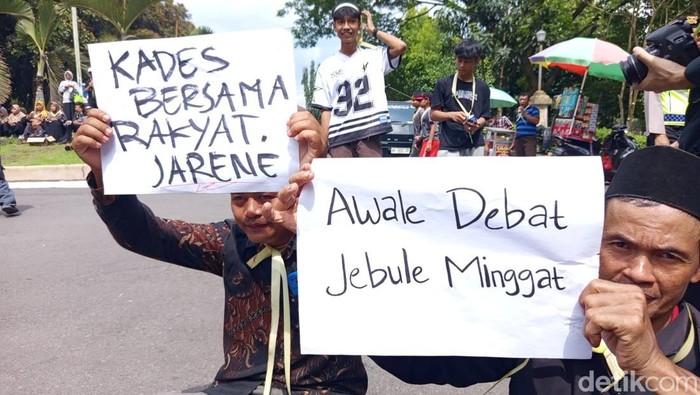 KADES
BERSAMA
RAKYAT.
JARENE
Awale Debat
Jebule Minggat
92
detikcom